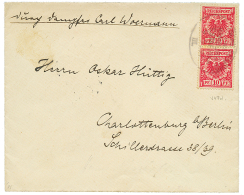 durch Dampfer Carl Woermann
REICHSPOST
10 PF. 10
Herrn Oskar Hüttig
Charlottenburg b/Berlin
Schillerstrasse 38/39.